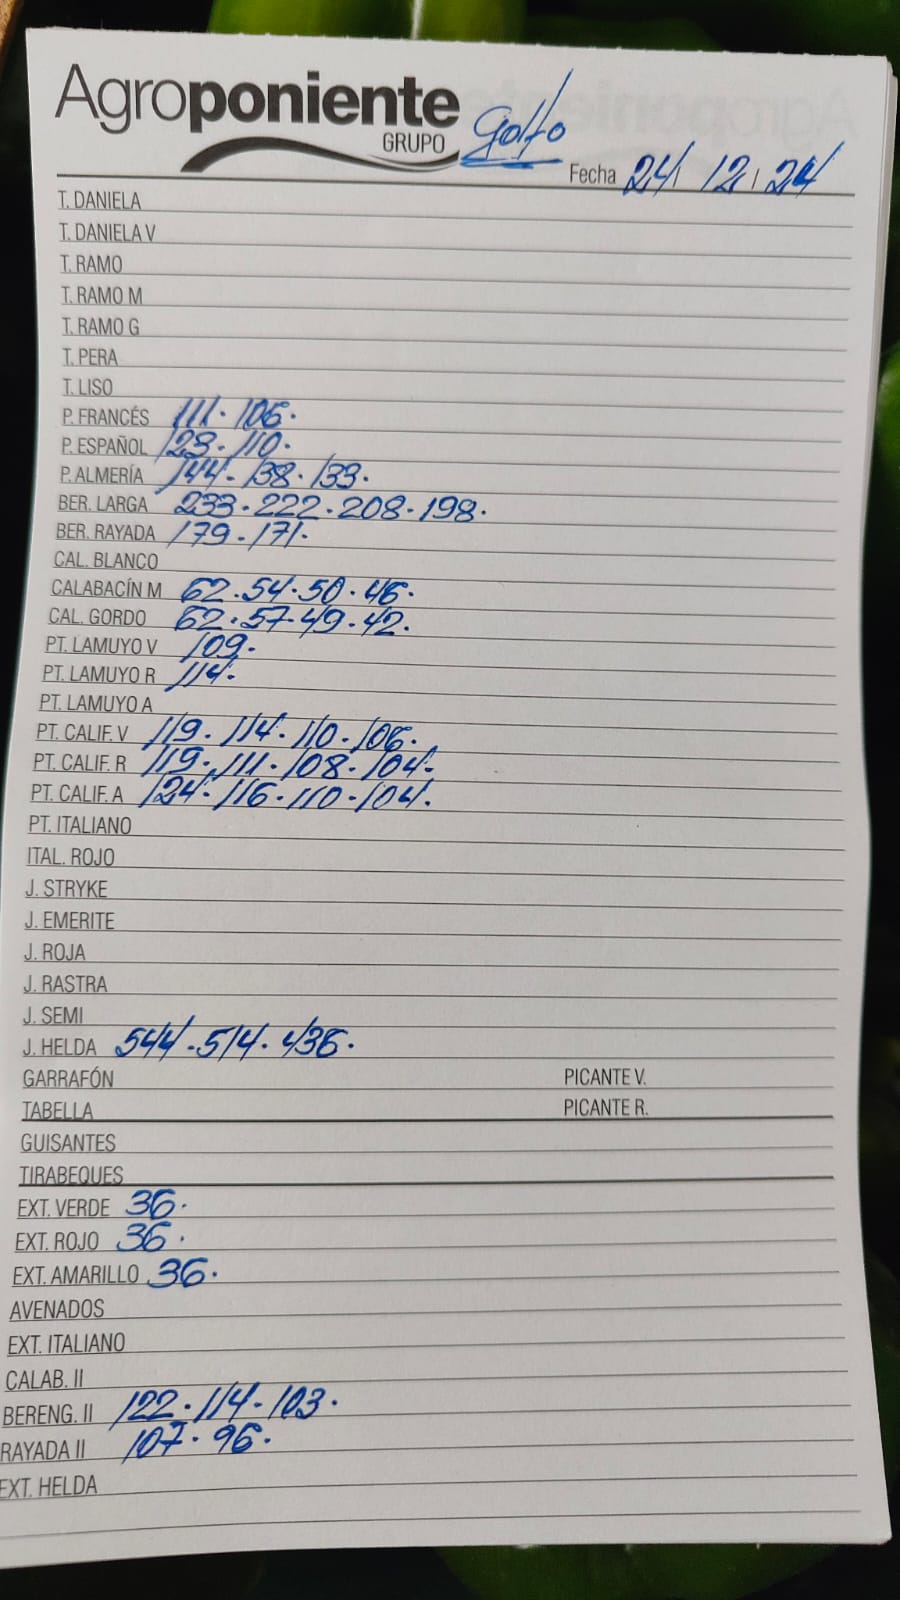 Agroponiente
GRUPO
Golfo
Fecha 24/12/24
T. DANIELA
T. DANIELA V
T. RAMO
T. RAMO M
T. RAMO G
T. PERA
T. LISO
P. FRANCÉS 111. 106.
P. ESPAÑOL 123. 110.
P. ALMERÍA 144. 138. 133.
BER. LARGA 233. 222. 208. 198.
BER. RAYADA 179. 171.
CAL. BLANCO
CALABACÍN M 62. 54. 50. 46.
CAL. GORDO 62. 57. 49. 42.
PT. LAMUYO V 109.
PT. LAMUYO R 114.
PT. LAMUYO A
PT. CALIF. V 119. 114. 110. 106.
PT. CALIF. R 119. 111. 108. 104.
PT. CALIF. A 124. 116. 110. 104.
PT. ITALIANO
ITAL. ROJO
J. STRYKE
J. EMERITE
J. ROJA
J. RASTRA
J. SEMI
J. HELDA 544. 514. 436.
GARRAFÓN PICANTE V.
TABELLA PICANTE R.
GUISANTES
TIRABEQUES
EXT. VERDE 36.
EXT. ROJO 36.
EXT. AMARILLO 36.
AVENADOS
EXT. ITALIANO
CALAB. II
BERENG. II 122. 114. 103.
RAYADA II 107. 96.
EXT. HELDA